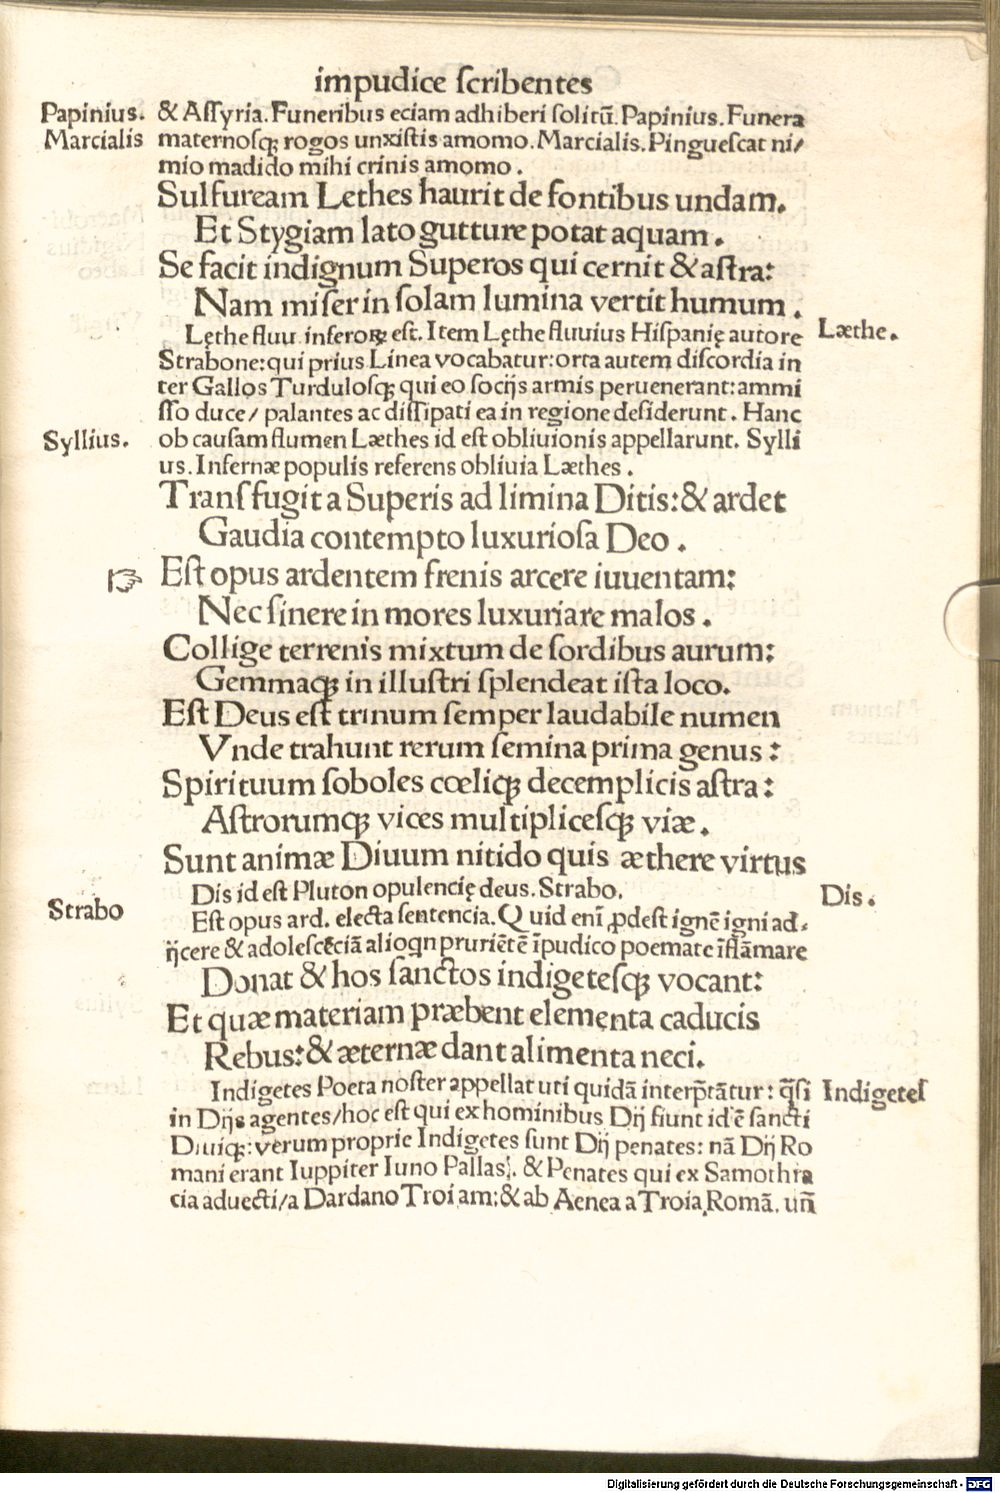 impudice ſcribentes
Papinius. & Aſſyria. Funeribus eciam adhiberi ſolitū. Papinius. Funera
Marcialis maternoſqꝫ rogos unxiſtis amomo. Marcialis. Pingueſcat ni/
mio madido mihi crinis amomo.
Sulfuream Lethes haurit de fontibus undam.
Et Stygiam lato gutture potat aquam.
Se facit indignum Superos qui cernit & aſtra:
Nam miſer in ſolam lumina vertit humum.
Lęthe fluu inferoꝝ eſt. Item Lęthe fluvius Hiſpanię autore Læthe.
Strabone: qui prius Linea vocabatur: orta autem diſcordia in
ter Gallos Turduloſqꝫ qui eo ſocijs armis peruenerant: ammi
ſſo duce/ palantes ac diſſipati ea in regione deſiderunt. Hanc
Syllius. ob cauſam flumen Læthes id eſt obliuionis appellarunt. Sylli
us. Infernæ populis referens obliuia Læthes.
Tranſfugit a Superis ad limina Ditis: & ardet
Gaudia contempto luxurioſa Deo.
☞ Eſt opus ardentem frenis arcere iuuentam:
Nec ſinere in mores luxuriare malos.
Collige terrenis mixtum de ſordibus aurum:
Gemmaqꝫ in illuſtri ſplendeat iſta loco.
Eſt Deus eſt trinum ſemper laudabile numen
Vnde trahunt rerum ſemina prima genus:
Spirituum ſoboles cœliqꝫ decemplicis aſtra:
Aſtrorumqꝫ vices multipliceſqꝫ viæ.
Sunt animæ Diuum nitido quis æthere virtus
Dis id eſt Pluton opulencię deus. Strabo. Dis.
Strabo Eſt opus ard. electa ſentencia. Quid eni᷄ ꝓdeſt ignē igni ad-
ijcere & adoleſcēciā alioqn pruriētē i᷄pudico poemate i᷄flāmare
Donat & hos ſanctos indigeteſqꝫ vocant:
Et quæ materiam præbent elementa caducis
Rebus: & æternæ dant alimenta neci.
Indigetes Poeta noſter appellat uti quidā interp̄tātur: q̄ſi Indigeteſ
in Dijs agentes/hoc eſt qui ex hominibus Dij fiunt id ē ſancti
Diuiqꝫ: verum proprie Indigetes ſunt Dij penates: nā Dij Ro
mani erant Iuppiter Iuno Pallas. & Penates qui ex Samothra
cia aduecti/a Dardano Troiam: & ab Aenea a Troia Romā. un̄
Digitalisierung gefördert durch die Deutsche Forschungsgemeinschaft - DFG